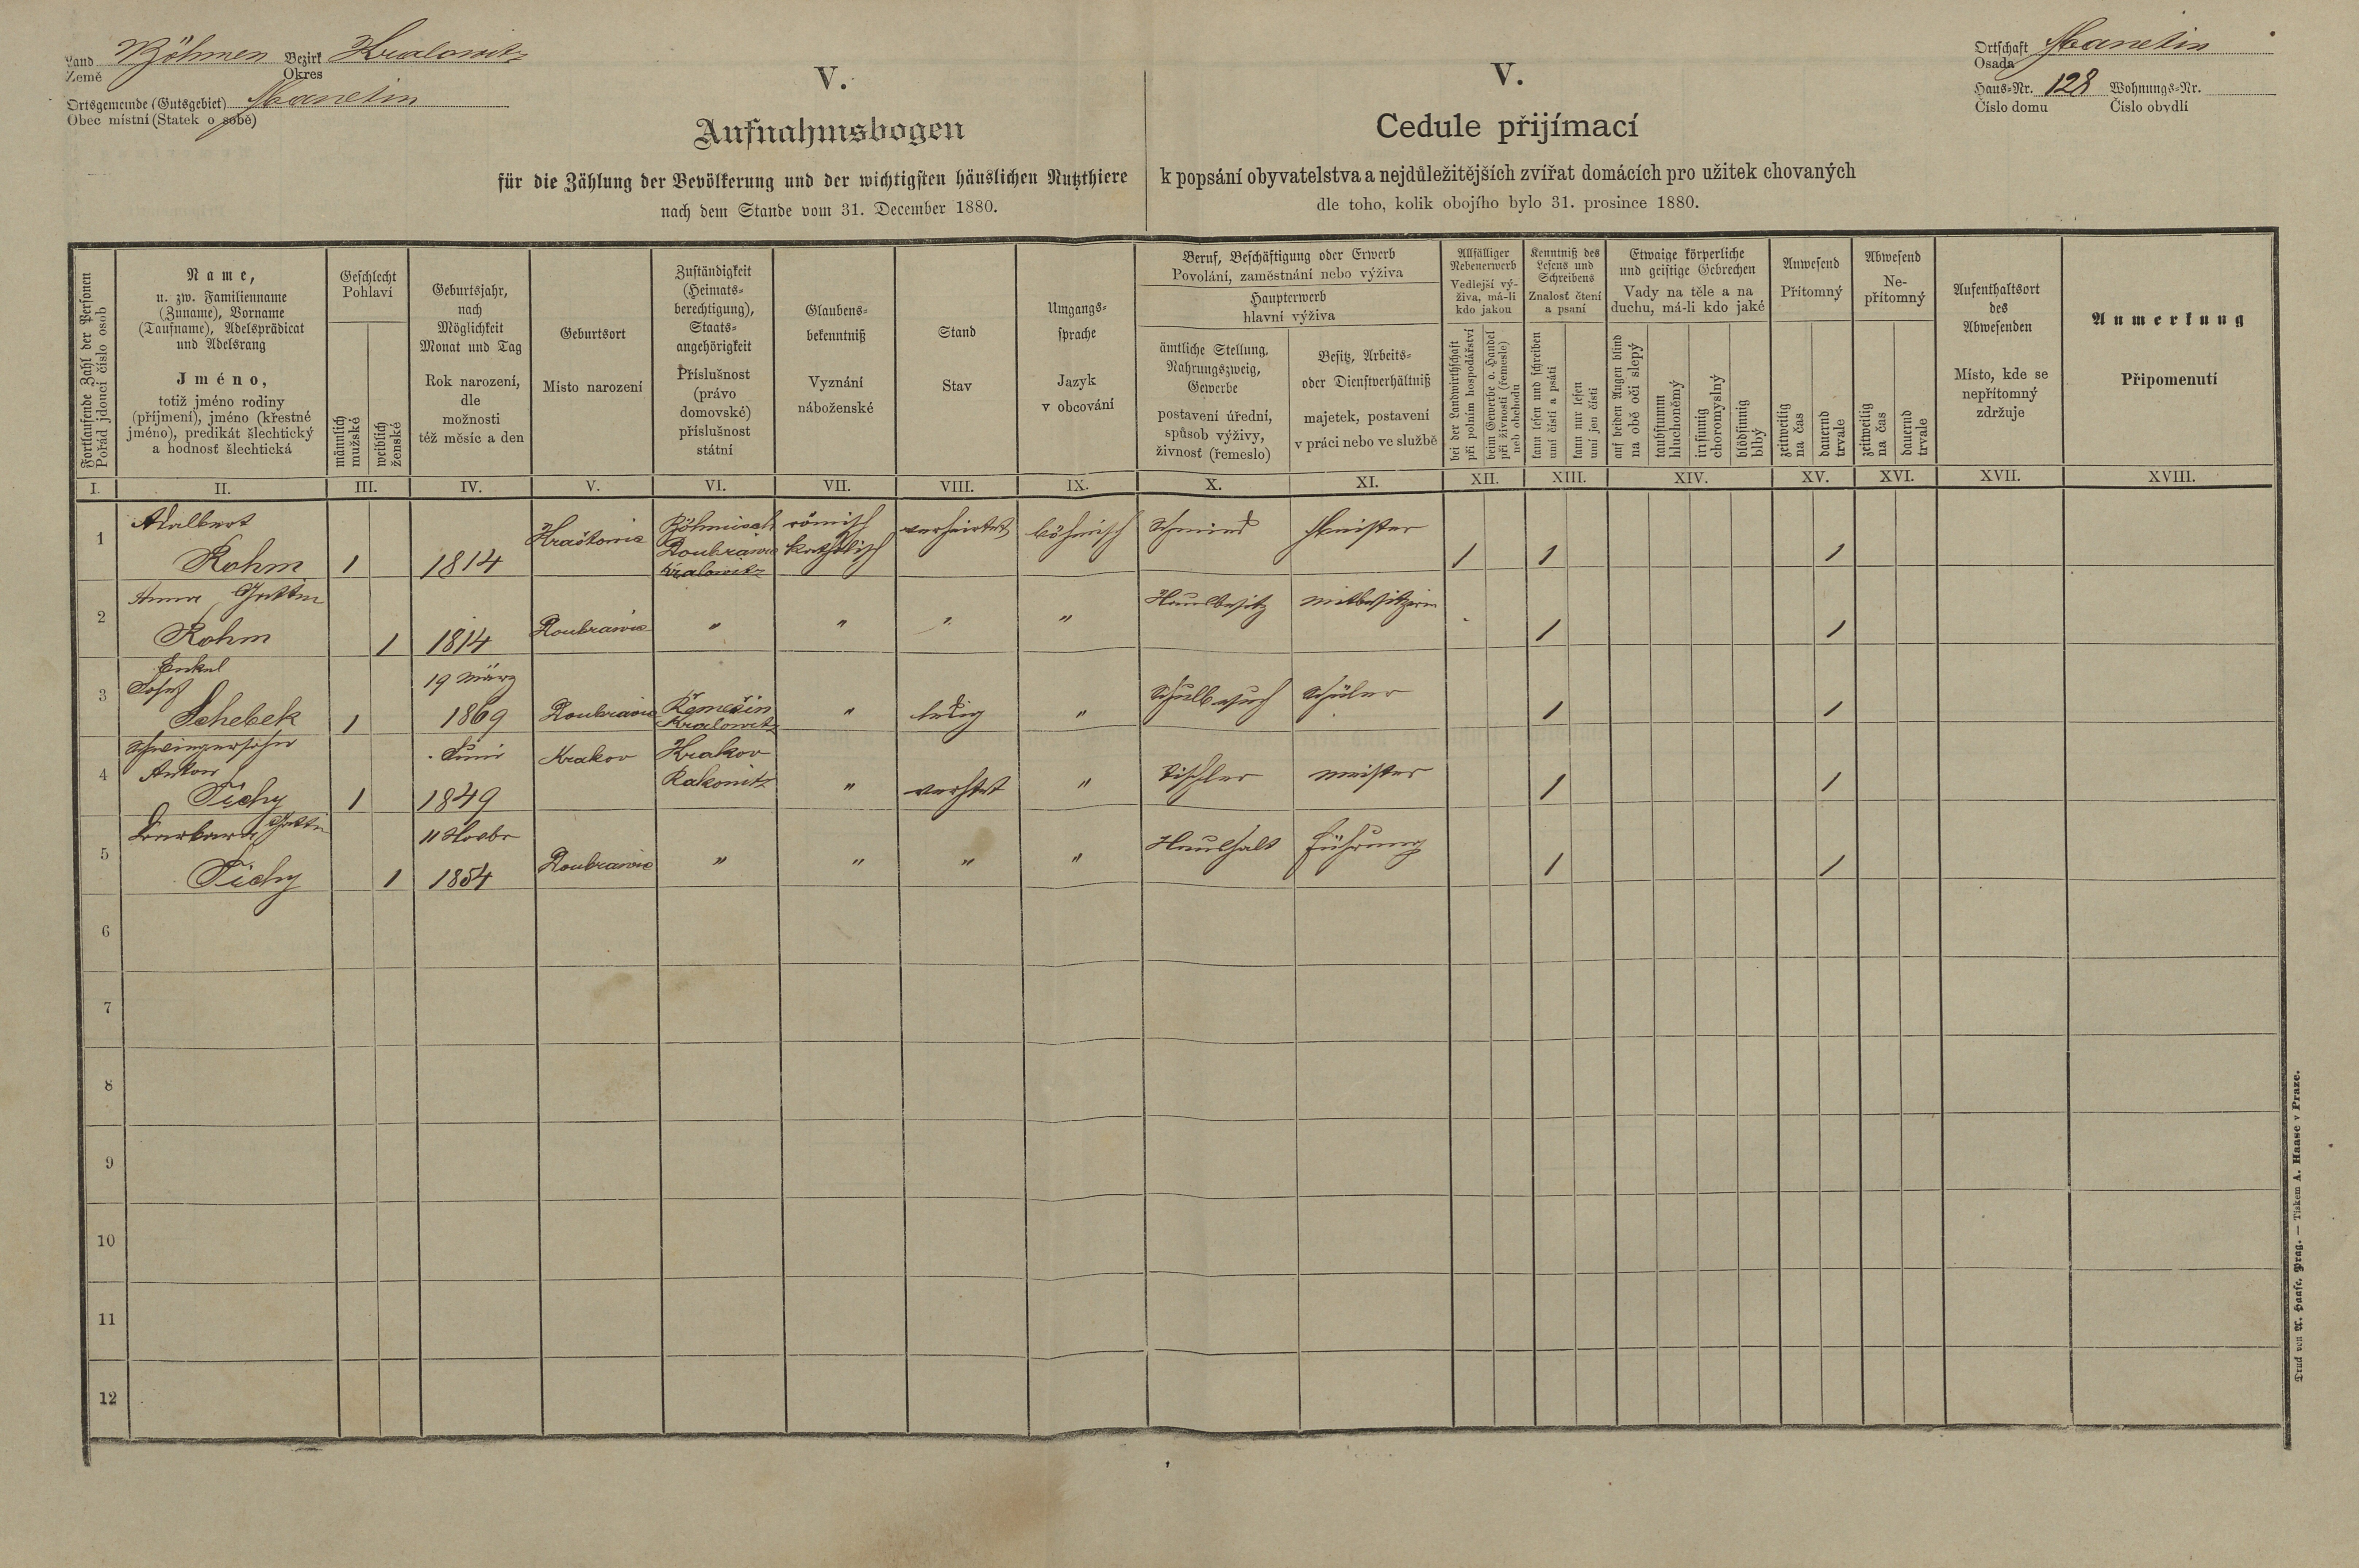 Land Böhmen Bezirk Kralowitz
Země Okres
Ortsgemeinde (Gutsgebiet) Manetin
Obec místní (Statek o sobě)
V.
Aufnahmsbogen
für die Zählung der Bevölkerung und der wichtigsten häuslichen Nutzthiere
nach dem Stande vom 31. December 1880.
V.
Cedule přijímací
k popsání obyvatelstva a nejdůležitějších zvířat domácích pro užitek chovaných
dle toho, kolik obojího bylo 31. prosince 1880.
Ortschaft Manetin
Osada
Haus-Nr. 128 Wohnungs-Nr.
Číslo domu Číslo obydlí
Fortlaufende Zahl der Personen
Pořád jdoucí číslo osob
Name,
u. zw. Familienname
(Zuname), Vorname
(Taufname), Adelsprädicat
und Adelsrang
Jméno,
totiž jméno rodiny
(příjmení), jméno (křestné
jméno), predikát šlechtický
a hodnosť šlechtická
Geschlecht
Pohlaví
männlich
mužské
weiblich
ženské
Geburtsjahr,
nach
Möglichkeit
Monat und Tag
Rok narození,
dle
možnosti
též měsíc a den
Geburtsort
Místo narození
Zuständigkeit
(Heimats-
berechtigung),
Staats-
angehörigkeit
Příslušnost
(právo
domovské)
příslušnost
státní
Glaubens-
bekenntniß
Vyznání
náboženské
Stand
Stav
Umgangs-
sprache
Jazyk
v obcování
Beruf, Beschäftigung oder Erwerb
Povolání, zaměstnání nebo výživa
Haupterwerb
hlavní výživa
ämtliche Stellung,
Nahrungszweig,
Gewerbe
postavení úřední,
spůsob výživy,
živnosť (řemeslo)
Besitz, Arbeits-
oder Dienstverhältniß
majetek, postavení
v práci nebo ve službě
Allfälliger
Nebenerwerb
Vedlejší vý-
živa, má-li
kdo jakou
bei der Landwirthschaft
při polním hospodářství
beim Gewerbe o. Handel
při živnosti (řemesle)
neb obchodu
Kenntniß des
Lesens und
Schreibens
Znalosť čtení
a psaní
kann lesen und schreiben
umí čísti a psáti
kann nur lesen
umí jen čísti
Etwaige körperliche
und geistige Gebrechen
Vady na těle a na
duchu, má-li kdo jaké
auf beiden Augen blind
na obě oči slepý
taubstumm
hluchoněmý
irrsinnig
choromyslný
blödsinnig
blbý
Anwesend
Přítomný
zeitweilig
na čas
dauernd
trvale
Abwesend
Ne-
přítomný
zeitweilig
na čas
dauernd
trvale
Aufenthaltsort
des
Abwesenden
Místo, kde se
nepřítomný
zdržuje
Anmerkung
Připomenutí
I. II. III. IV. V. VI. VII. VIII. IX. X. XI. XII. XIII. XIV. XV. XVI. XVII. XVIII.
Adalbert Böhmisch römisch verheiratet böhmisch Schmied Meister
1 Rohm 1 1814 Doubrawic katholisch 1 1 1
Kralowitz
Anna Gattin Hausbesitz mitbesitzerin
2 Rohm 1 1814 Doubrawic " " " " 1 1
Enkel
Josef 19 März Schulbesuch Schüler
3 Schebek 1 1869 Doubrawic Řemešin " ledig " 1 1
Kralowitz
Schwiegersohn
Anton Juni Krakov Krakov Tischler meister
4 Tichy 1 1849 Rakonitz " verhtet " 1 1
Barbara Gattin Haushalt führung
5 Tichy 1 1854 Doubrawic " " " " 1 1
6
7
8
9
10
11
12
Druck von A. Haase, Prag. — Tiskem A. Haase v Praze.